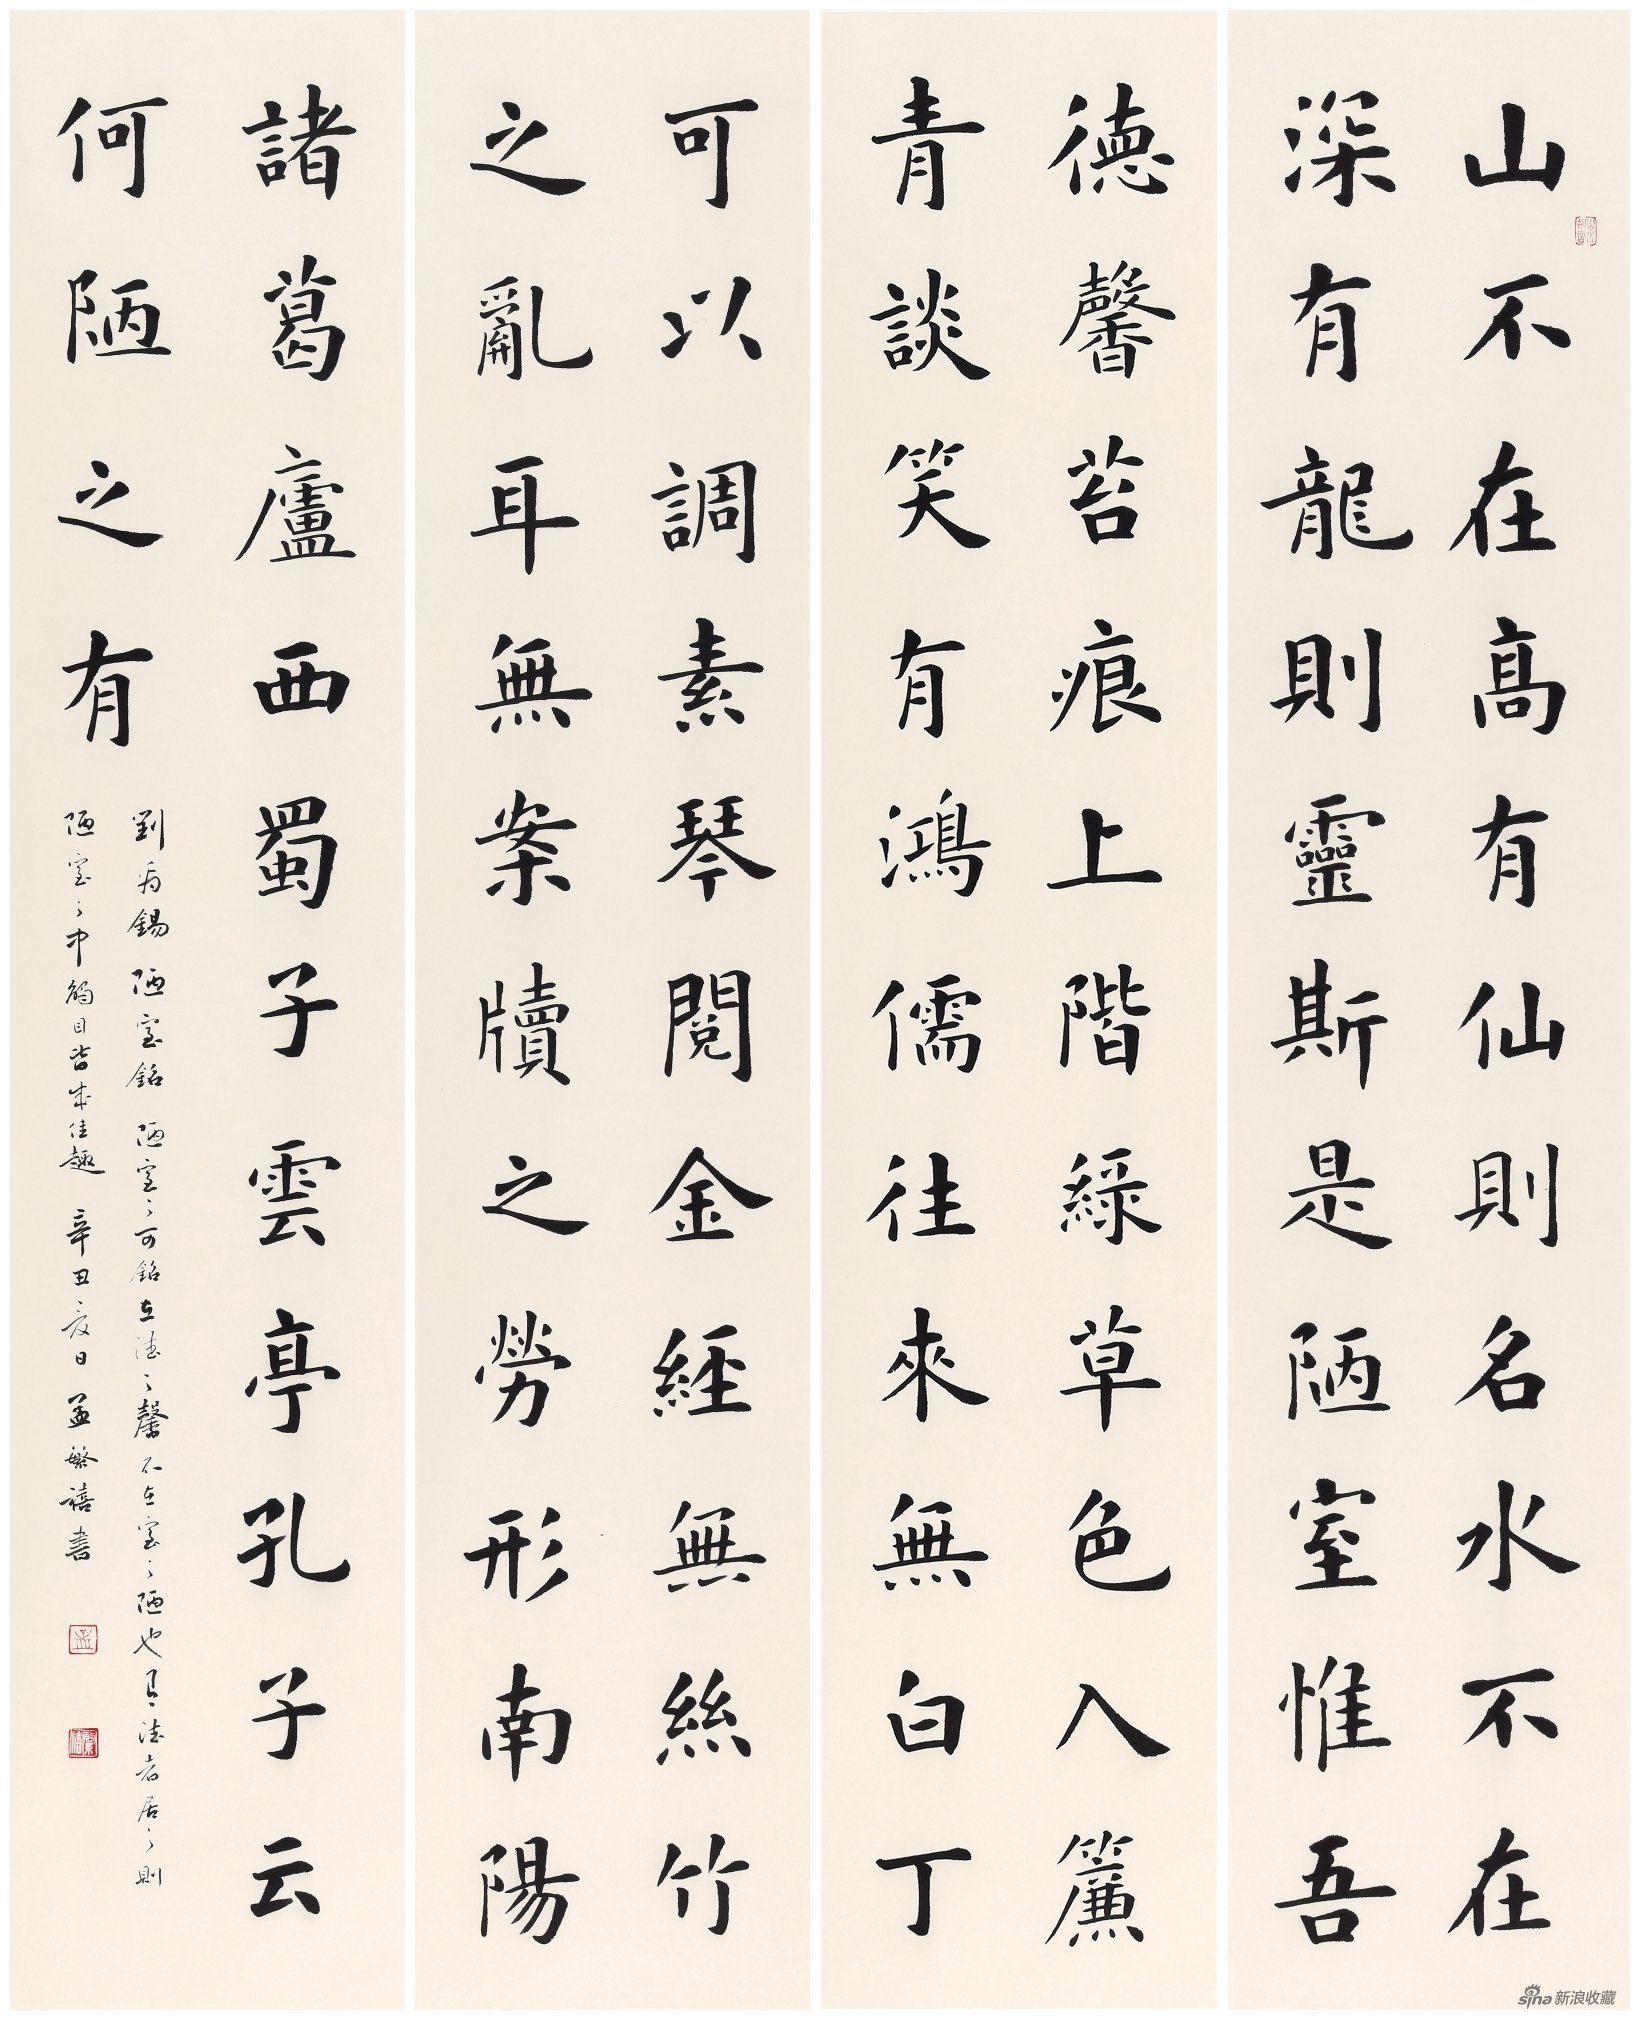 山不在高有仙則名水不在
深有龍則靈斯是陋室惟吾
德馨苔痕上階綠草色入簾
青談笑有鴻儒往來無白丁
可以調素琴閱金經無絲竹
之亂耳無案牘之勞形南陽
諸葛廬西蜀子雲亭孔子云
何陋之有
劉禹錫陋室銘陋室之可銘在德之馨不在室之陋也有德者居之則
陋室之中觸目皆成佳趣辛丑夏日孟繁禧書
sina新浪收藏